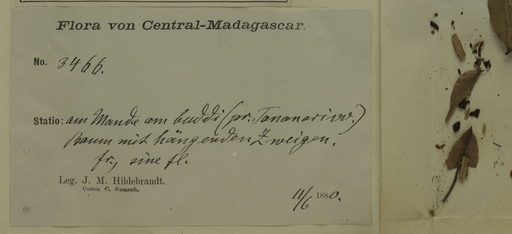 Flora von Central-Madagascar.
No. 3466.
Statio: am Wande am (pr. Tananariv.)
Baum mit hängenden Zweigen.
fr, sine fl.
Leg. J. M. Hildebrandt.
Comm. C. Rensch.
11/6 1880.